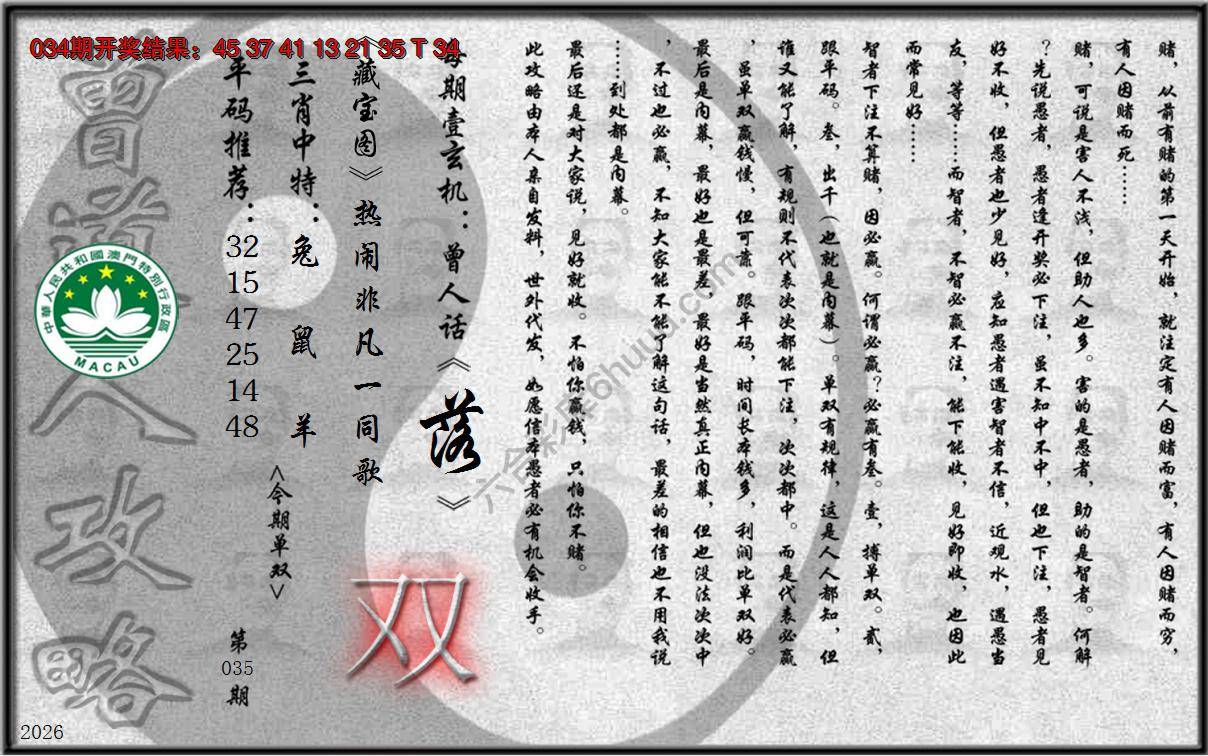 034期开奖结果：45 37 41 13 21 35 T 34
赌，从前有赌的第一天开始，就注定有人因赌而富，有人因赌而穷，
有人因赌而死……
赌，可说是害人不浅，但助人也多。害的是愚者，助的是智者。何解
？先说愚者，愚者逢开奖必下注，虽不知中不中，但也下注，愚者见
好不收，但愚者也少见好，应知愚者遇害智者不信，近观水，遇愚当
友，等等……而智者，不智必赢不注，能下能收，见好即收，也因此
而常见好……
智者下注不算赌，因必赢。何谓必赢？必赢有叁。壹，搏单双。贰，
跟平码。叁，出千（也就是内幕）。单双有规律，这是人人都知，但
谁又能了解，有规则不代表次次都能下注，次次都中。而是代表必赢
，虽单双赢钱慢，但可靠。跟平码，时间长本钱多，利润比单双好。
最后是内幕，最好也是最差，最好是当然真正内幕，但也没法次次中
，不过也必赢，不知大家能不能了解这句话，最差的相信也不用我说
……到处都是内幕。
最后还是对大家说，见好就收。不怕你赢钱，只怕你不赌。
此攻略由本人亲自发料，世外代发，如愿信本愚者必有机会收手。
每期壹玄机：曾人话《落》
《藏宝图》热闹非凡一同歌
三肖中特：兔 鼠 羊
平码推荐：
32
15
47
25
14
48
<今期单双>
双
第
035
期
曾道人攻略
中華人民共和國澳門特別行政區
MACAU
六合彩库6huuu.com
2026